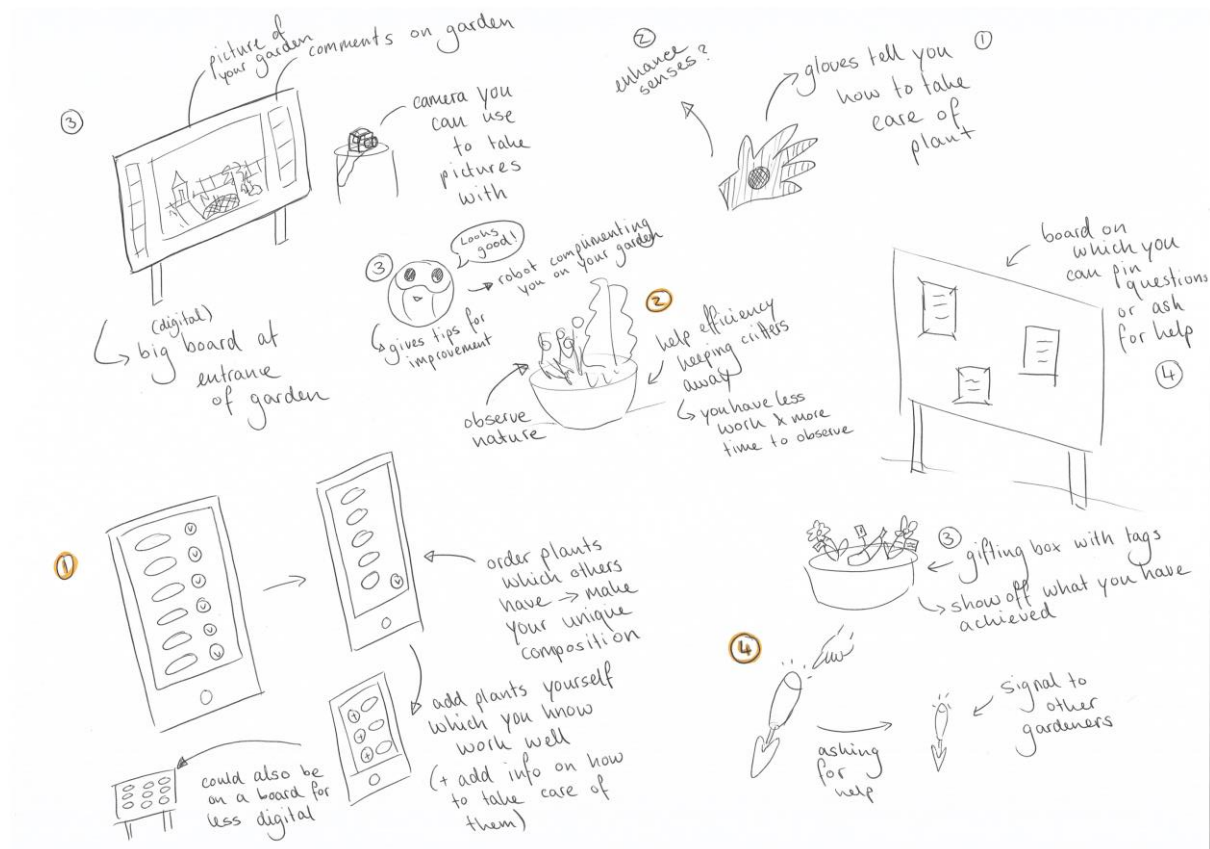 picture of
your garden
comments on garden
③
camera you
can use
to take
pictures
with
(digital)
big board at
entrance
of garden
②
enhance
senses?
①
gloves tell you
how to take
care of
plant
③
Looks
good!
robot complimenting
you on your garden
gives tips for
improvement
②
help efficiency
keeping critters
away
you have less
work & more
time to observe
observe
nature
board on
which you
can pin
questions
or ask
for help
④
①
order plants
which others
have → make
your unique
composition
add plants yourself
which you know
work well
(+ add info on how
to take care of
them)
could also be
on a board for
less digital
③
gifting box with tags
show off what you have
achieved
④
asking
for
help
signal to
other
gardeners